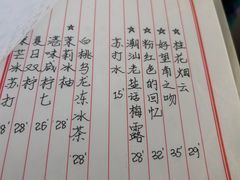 桂花烟云 29'
★好望南之吻 35'
粉红色的回忆 32'
潮汕老盐话梅露 28'
苏打水 15'
白桃乌龙冻冰茶 28'
★茉莉冰柚 28'
味咸柠七 26'
夏日双柠 28'
苏打 8'